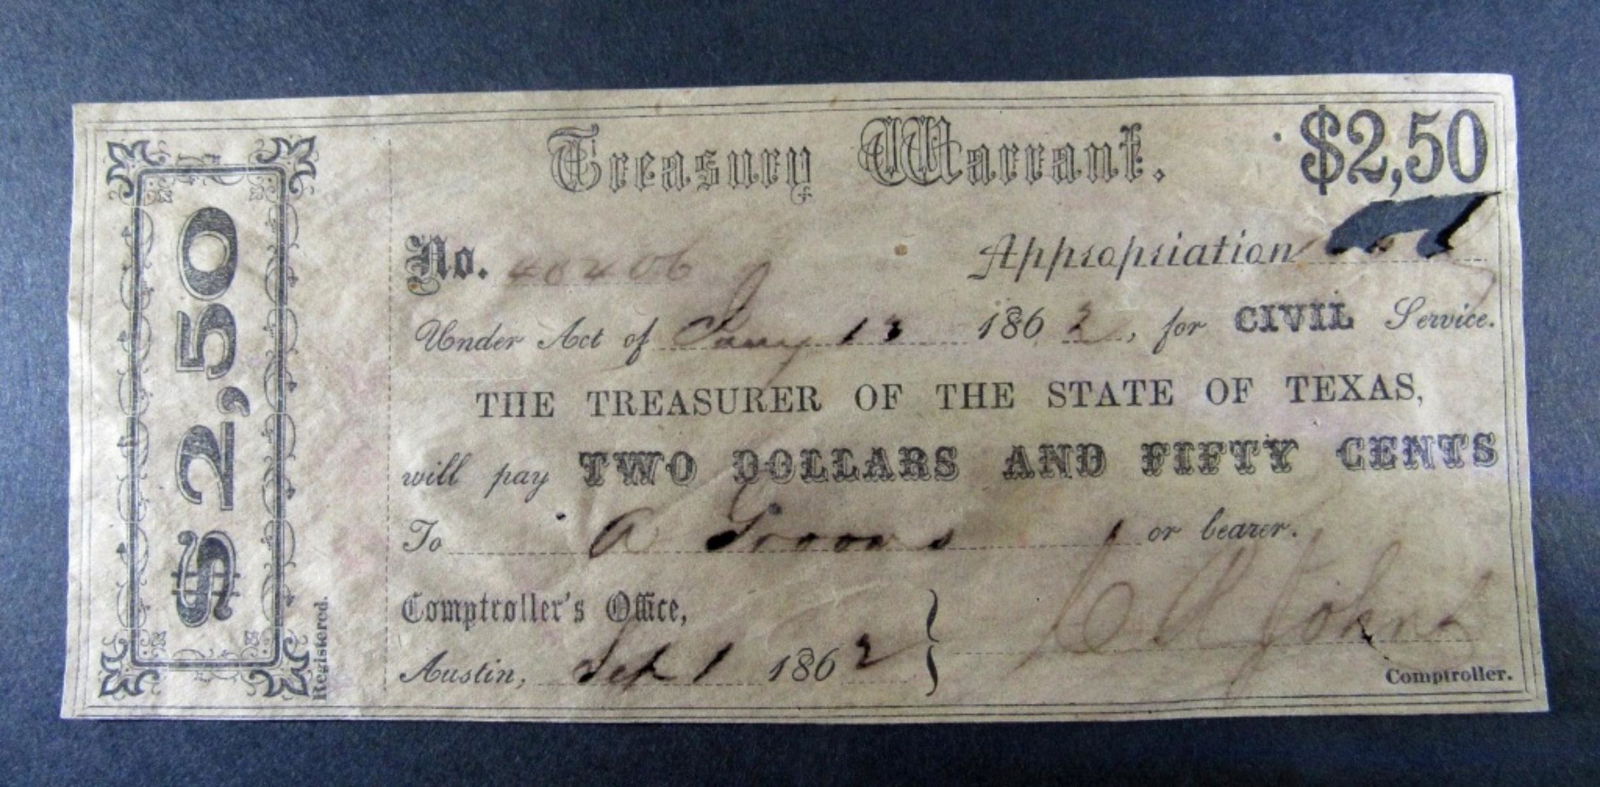 Treasury Warrant. $2,50
$2,50
No. 40406 Appropriation
Under Act of Jany 13 1862, for CIVIL Service.
THE TREASURER OF THE STATE OF TEXAS,
will pay TWO DOLLARS AND FIFTY CENTS
To A Grooms or bearer.
Comptroller's Office,
Austin, Sep 1 1862
C R Johns
Comptroller.
Registered.